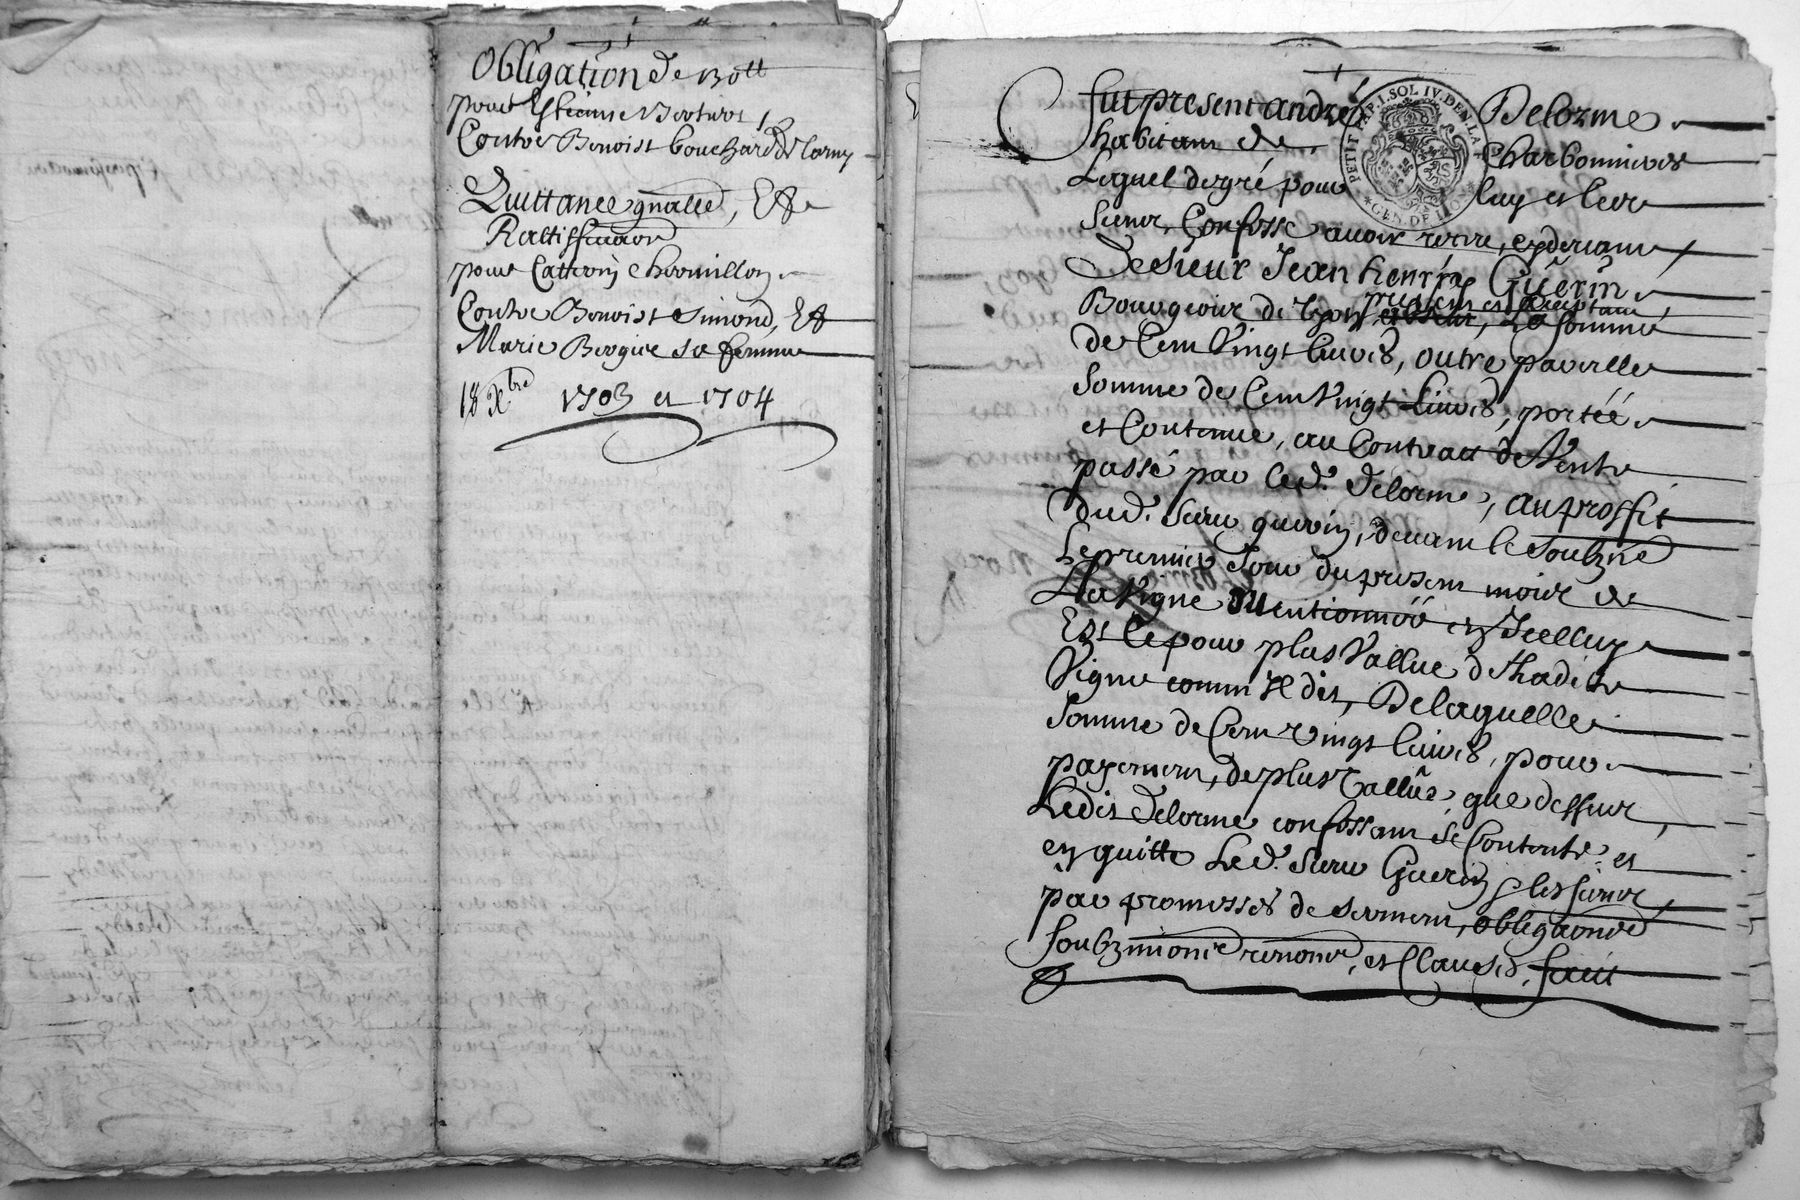 Obligation de 130ll
pour Estienne Bertirot
Contre Benoist bouchard de larny
Quittance gnalle, Et
Rattiffication
pour Catherin Chermillon
Contre Benoist Simond, Et
Marie Brogire sa femme
18 Xbre 1703 et 1704
fut present andré Delorme
habitant de Charbonnieres
PETIT PAP. I. SOL IV. DEN. LA
GEN. DE LIO
Lequel de gré pour luy et les
siens, Confesse avoir receu, cy devant
De sieur Jean henry Guerin
present et acceptant
Bourgeois de Lyon, La somme
de Cent Vingt livres, outre pareille
somme de Cent Vingt Livres, portée
et Contenue, au Contract de Vente
passé par led. Delorme, au proffit
dud. sieur guerin, devant le soubzné
Le premier Jour du present mois de
La Vigne Mentionnée en Icelluy
Est ce pour plus Vallue d'Ladite
Vigne comm Il dit, De laquelle
somme de Cent vingt livres, pour
payement, de plus Vallue que dessus,
Ledit Delorme confessant se Contente et
en quitte Led. sieur Guerin & les siens,
par promesses de serment, obligaons
soubzmions renons, et Clauses, fait